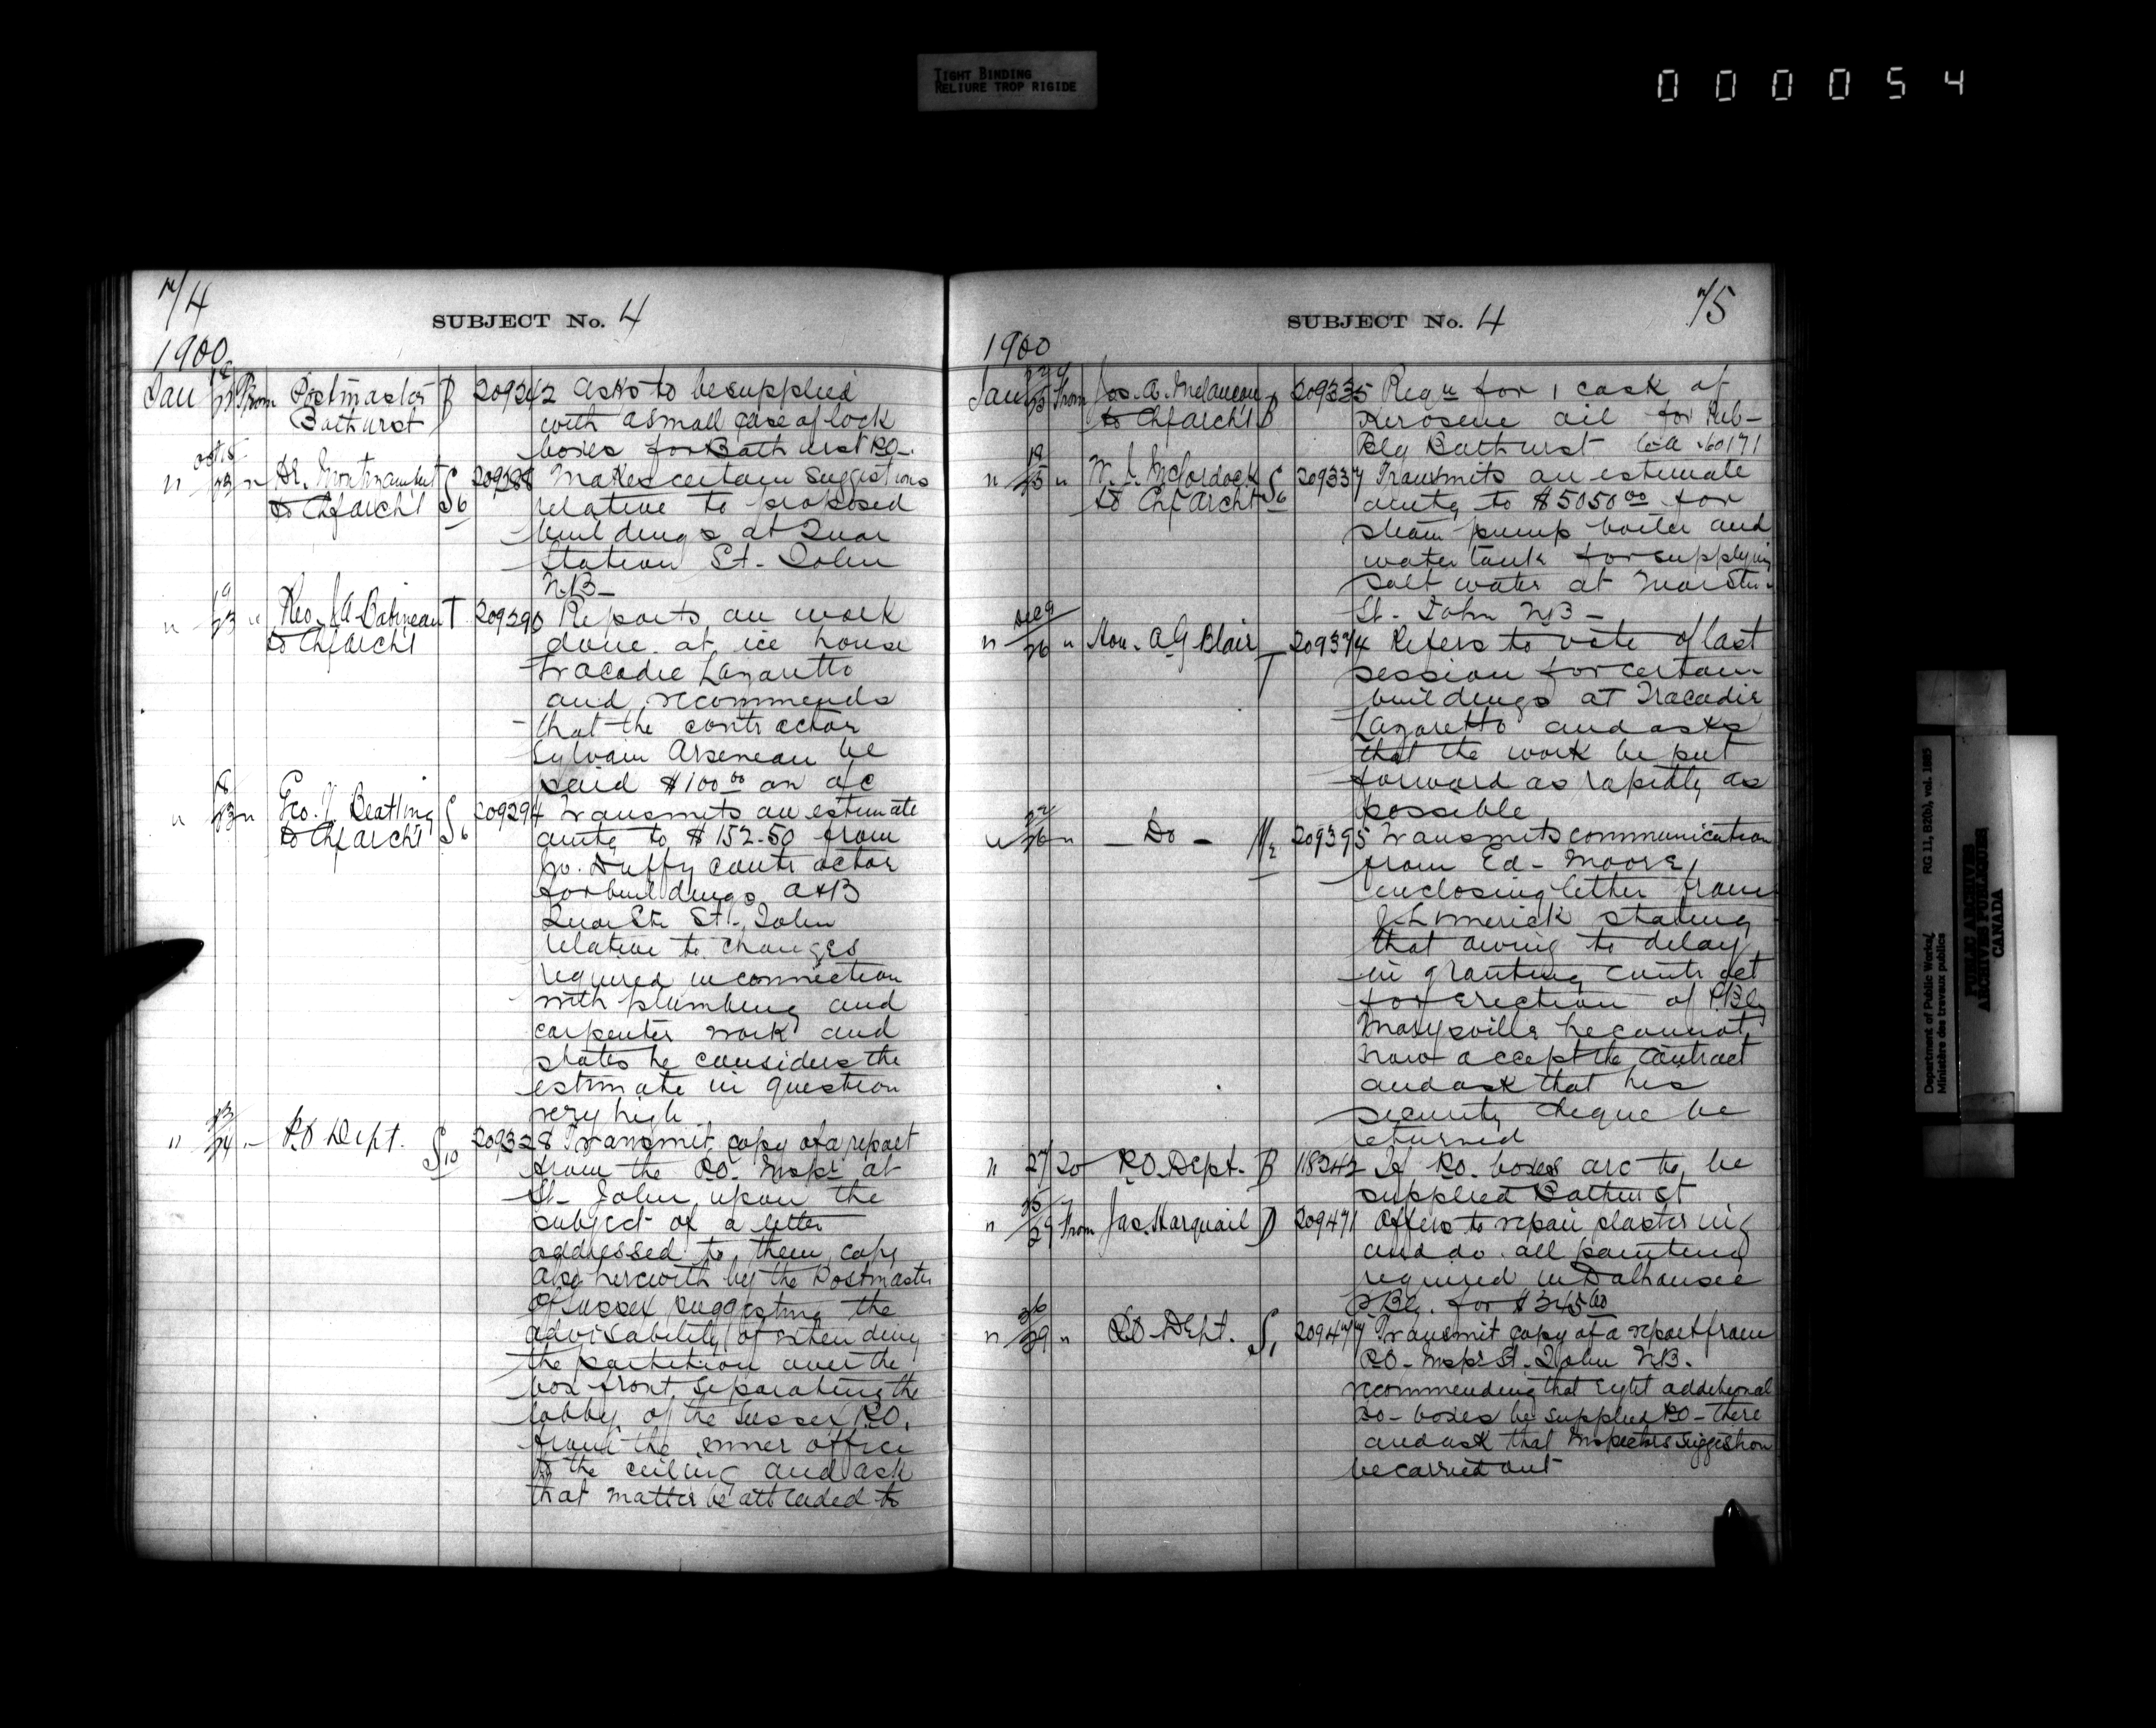 TIGHT BINDING
RELIURE TROP RIGIDE
000054
74
SUBJECT No. 4
1900
Jan From Postmaster B 209242 Asks to be supplied
Bathurst with a small case of lock
boxes for Bathurst P.O.
Oct 15
" " Dr. Montizambert S6 209288 Makes certain suggestions
to Chf Archt relative to proposed
buildings at Quar
Station St. John
N.B.
19
" 23 " Rev. J.A. Babineau T 209290 Reports on work
to Chf Archt done at ice house
Tracadie Lazaretto
and recommends
that the contractor
Sylvain Arseneau be
paid $100 00 on a/c
" 23 " Geo. J. Beatting S6 209294 Transmits an estimate
to Chf Archt amtg to $152.50 from
Jo. Duffy contractor
for buildings A & B
Quar Stn St. John
relative to changes
required in connection
with plumbing and
carpenter work and
states he considers the
estimate in question
very high
23
" 24 " P.O Dept. S10 209328 Transmit copy of a report
from the P.O. Inspr at
St. John upon the
subject of a letter
addressed to them, copy
also herewith by the Postmaster
of Sussex suggesting the
advisability of extending
the partition over the
box front separating the
lobby of the Sussex P.O.
from the inner office
to the ceiling and ask
that matter be attended to
75
SUBJECT No. 4
1900
Jan 25 From Jas. A. Melancon B 209335 Reqn for 1 cask of
to Chf Archt Kerosene oil for Pub-
Blg Bathurst
19
" 25 " S6 209337 Transmits an estimate
to Chf Archt amtg to $5050 00 for
steam pump boiler and
water tank for supplying
salt water at Quar Stn
St. John N.B.
Dec 9
" 26 " Hon. A G Blair T 209374 Refers to vote of last
session for certain
buildings at Tracadie
Lazaretto and asks
that the work be put
forward as rapidly as
possible
22
" 26 " — Do — M2 209395 Transmits communication
from Ed. Moore,
enclosing letter from
J. Limerick stating
that owing to delay
in granting contract
for erection of P.Blg
Marysville he cannot
now accept the contract
and ask that his
security cheque be
returned
" 27 To P.O. Dept. B 118242 If P.O. boxes are to be
supplied Bathurst
25
" 29 From Jas. Harquail D 209471 Offers to repair plastering
and do all painting
required in Dalhousie
P Blg. for $345 00
26
" 29 " P.O Dept. S1 209477 Transmit copy of a report from
P.O. Inspr St. John N.B.
recommending that eight additional
P.O. boxes be supplied P.O. there
and ask that Inspectors suggestion
be carried out
Department of Public Works/
Ministère des travaux publics
RG 11, B2(b), vol. 1885
PUBLIC ARCHIVES
ARCHIVES PUBLIQUES
CANADA